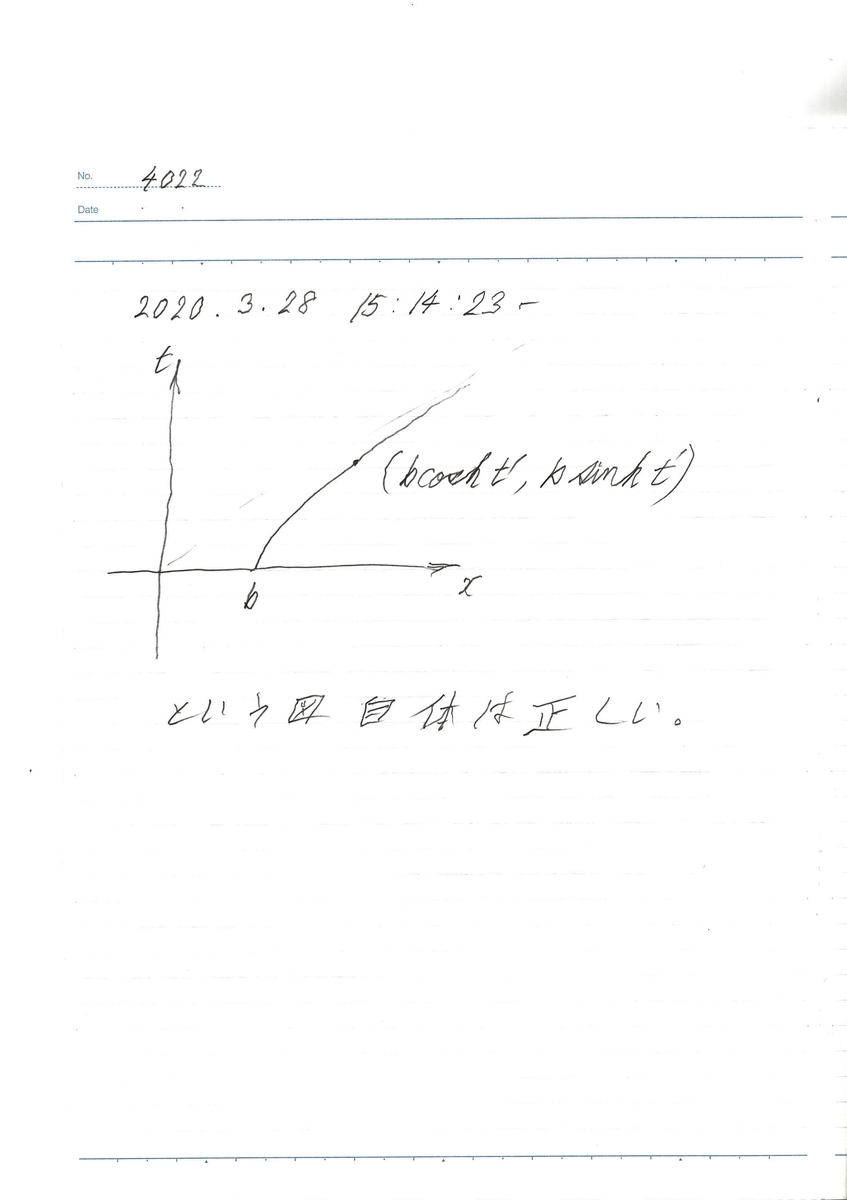 No. 4022
Date
2020.3.28 15:14:23-
t
(b cosh t', b sinh t')
b
x
という図自体は正しい。